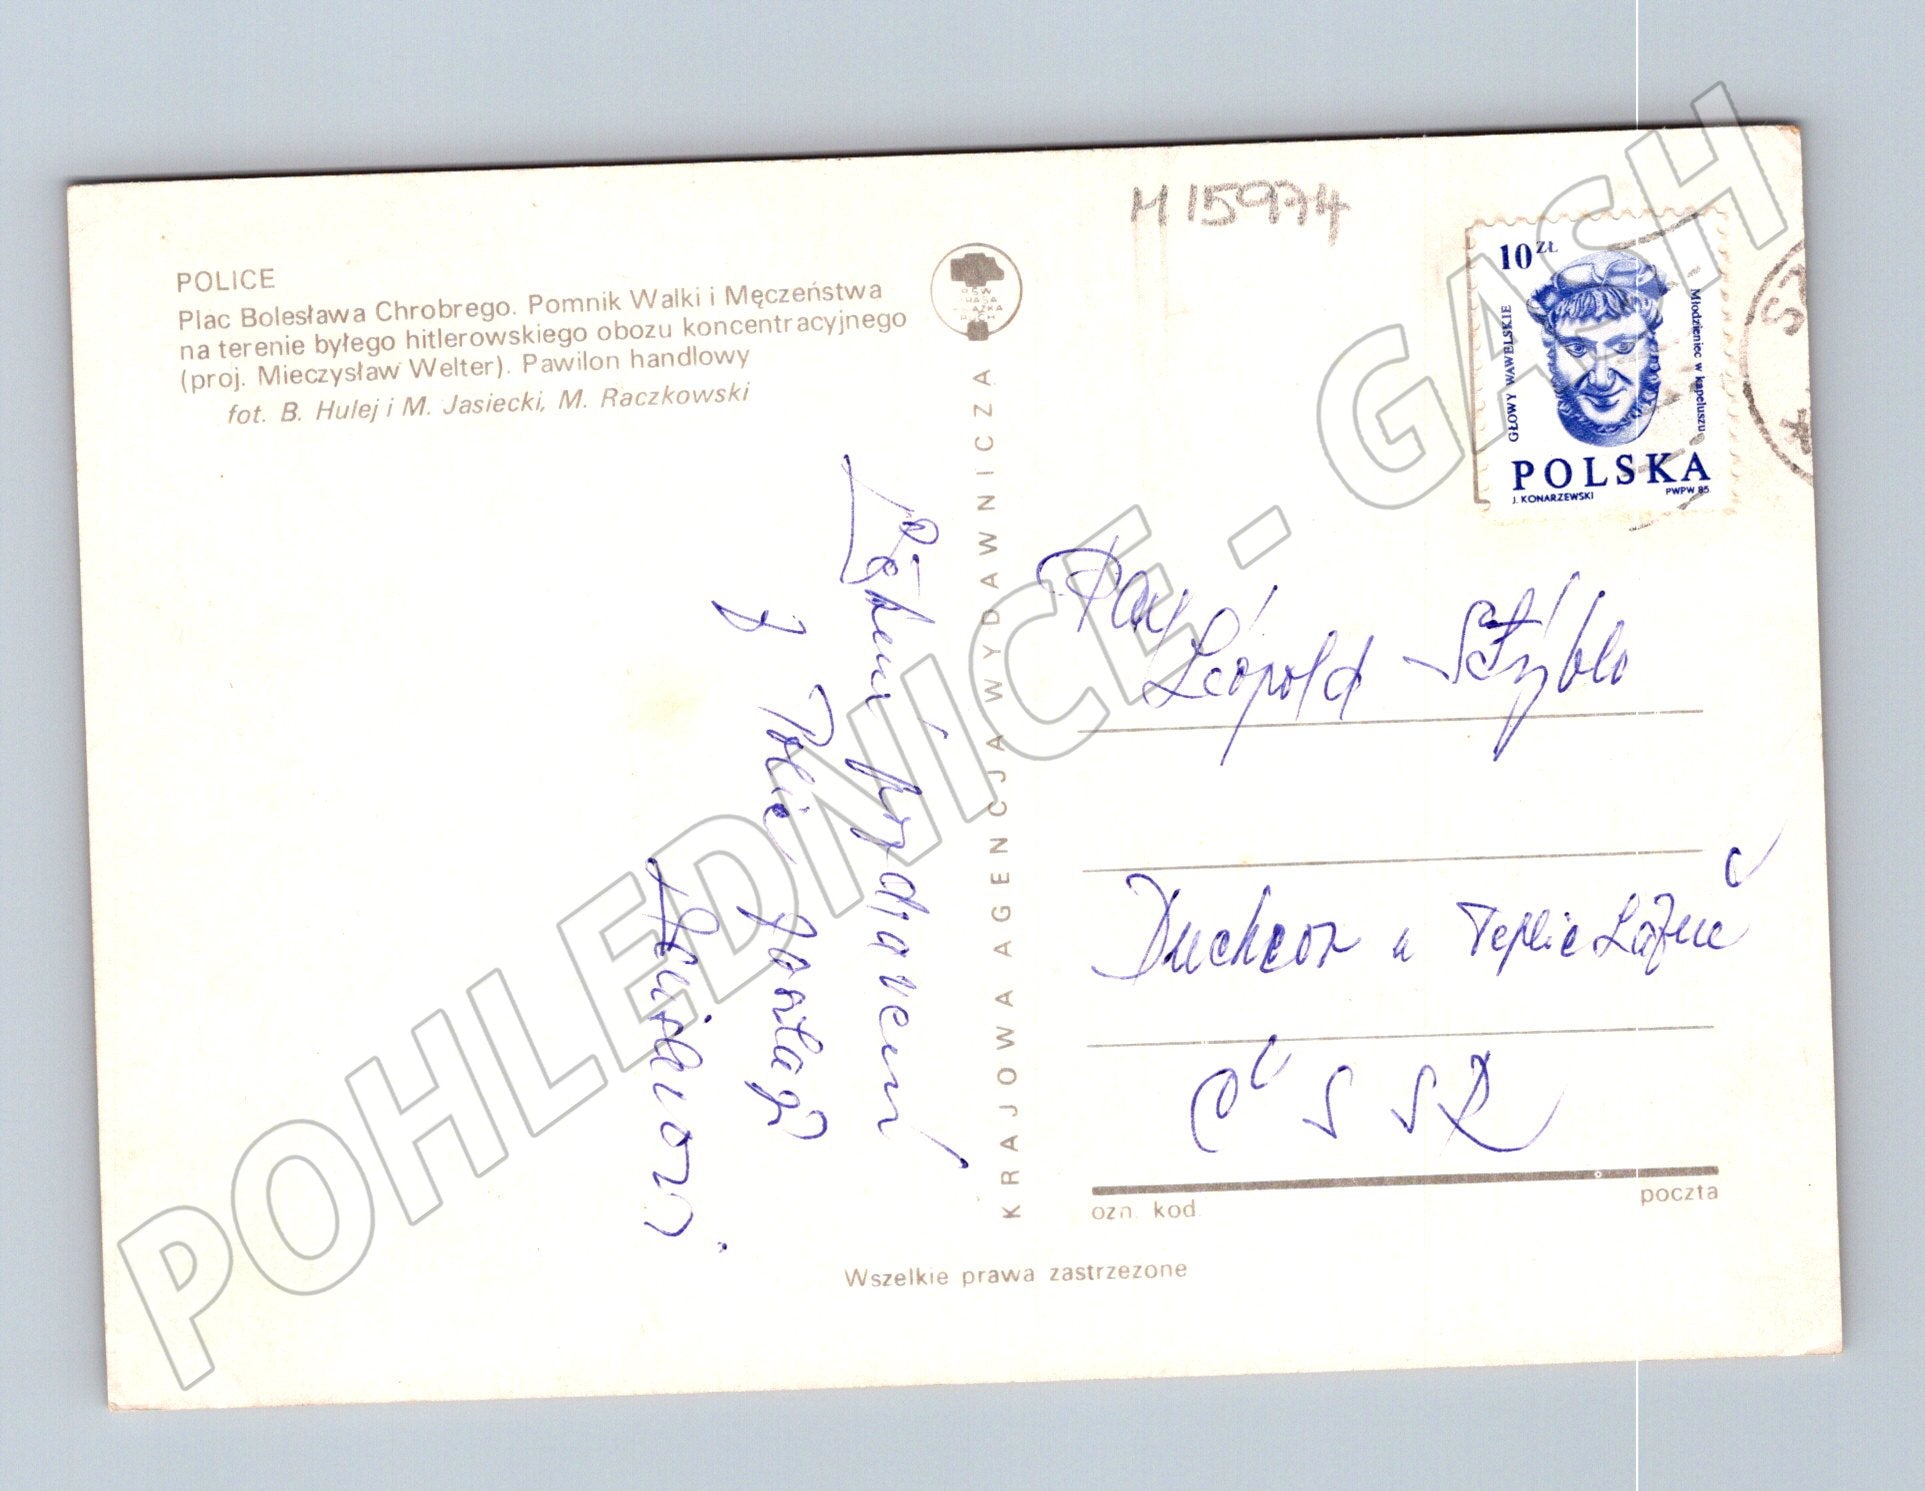 M 15974
POLICE
Plac Bolesława Chrobrego. Pomnik Walki i Męczeństwa
na terenie byłego hitlerowskiego obozu koncentracyjnego
(proj. Mieczysław Welter). Pawilon handlowy
fot. B. Hulej i M. Jasiecki, M. Raczkowski
RSW PRASA KSIĄŻKA RUCH
KRAJOWA AGENCJA WYDAWNICZA
10 ZŁ
GŁOWY WAWELSKIE
Młodzieniec w kapeluszu
POLSKA
J. KONARZEWSKI PWPW 85
SZ
Pan
Leopold Stýblo
Duchcov u Teplic Lázně
ČSSR
ozn. kod. poczta
z Polic
Wszelkie prawa zastrzeżone
POHLEDNICE - GASH